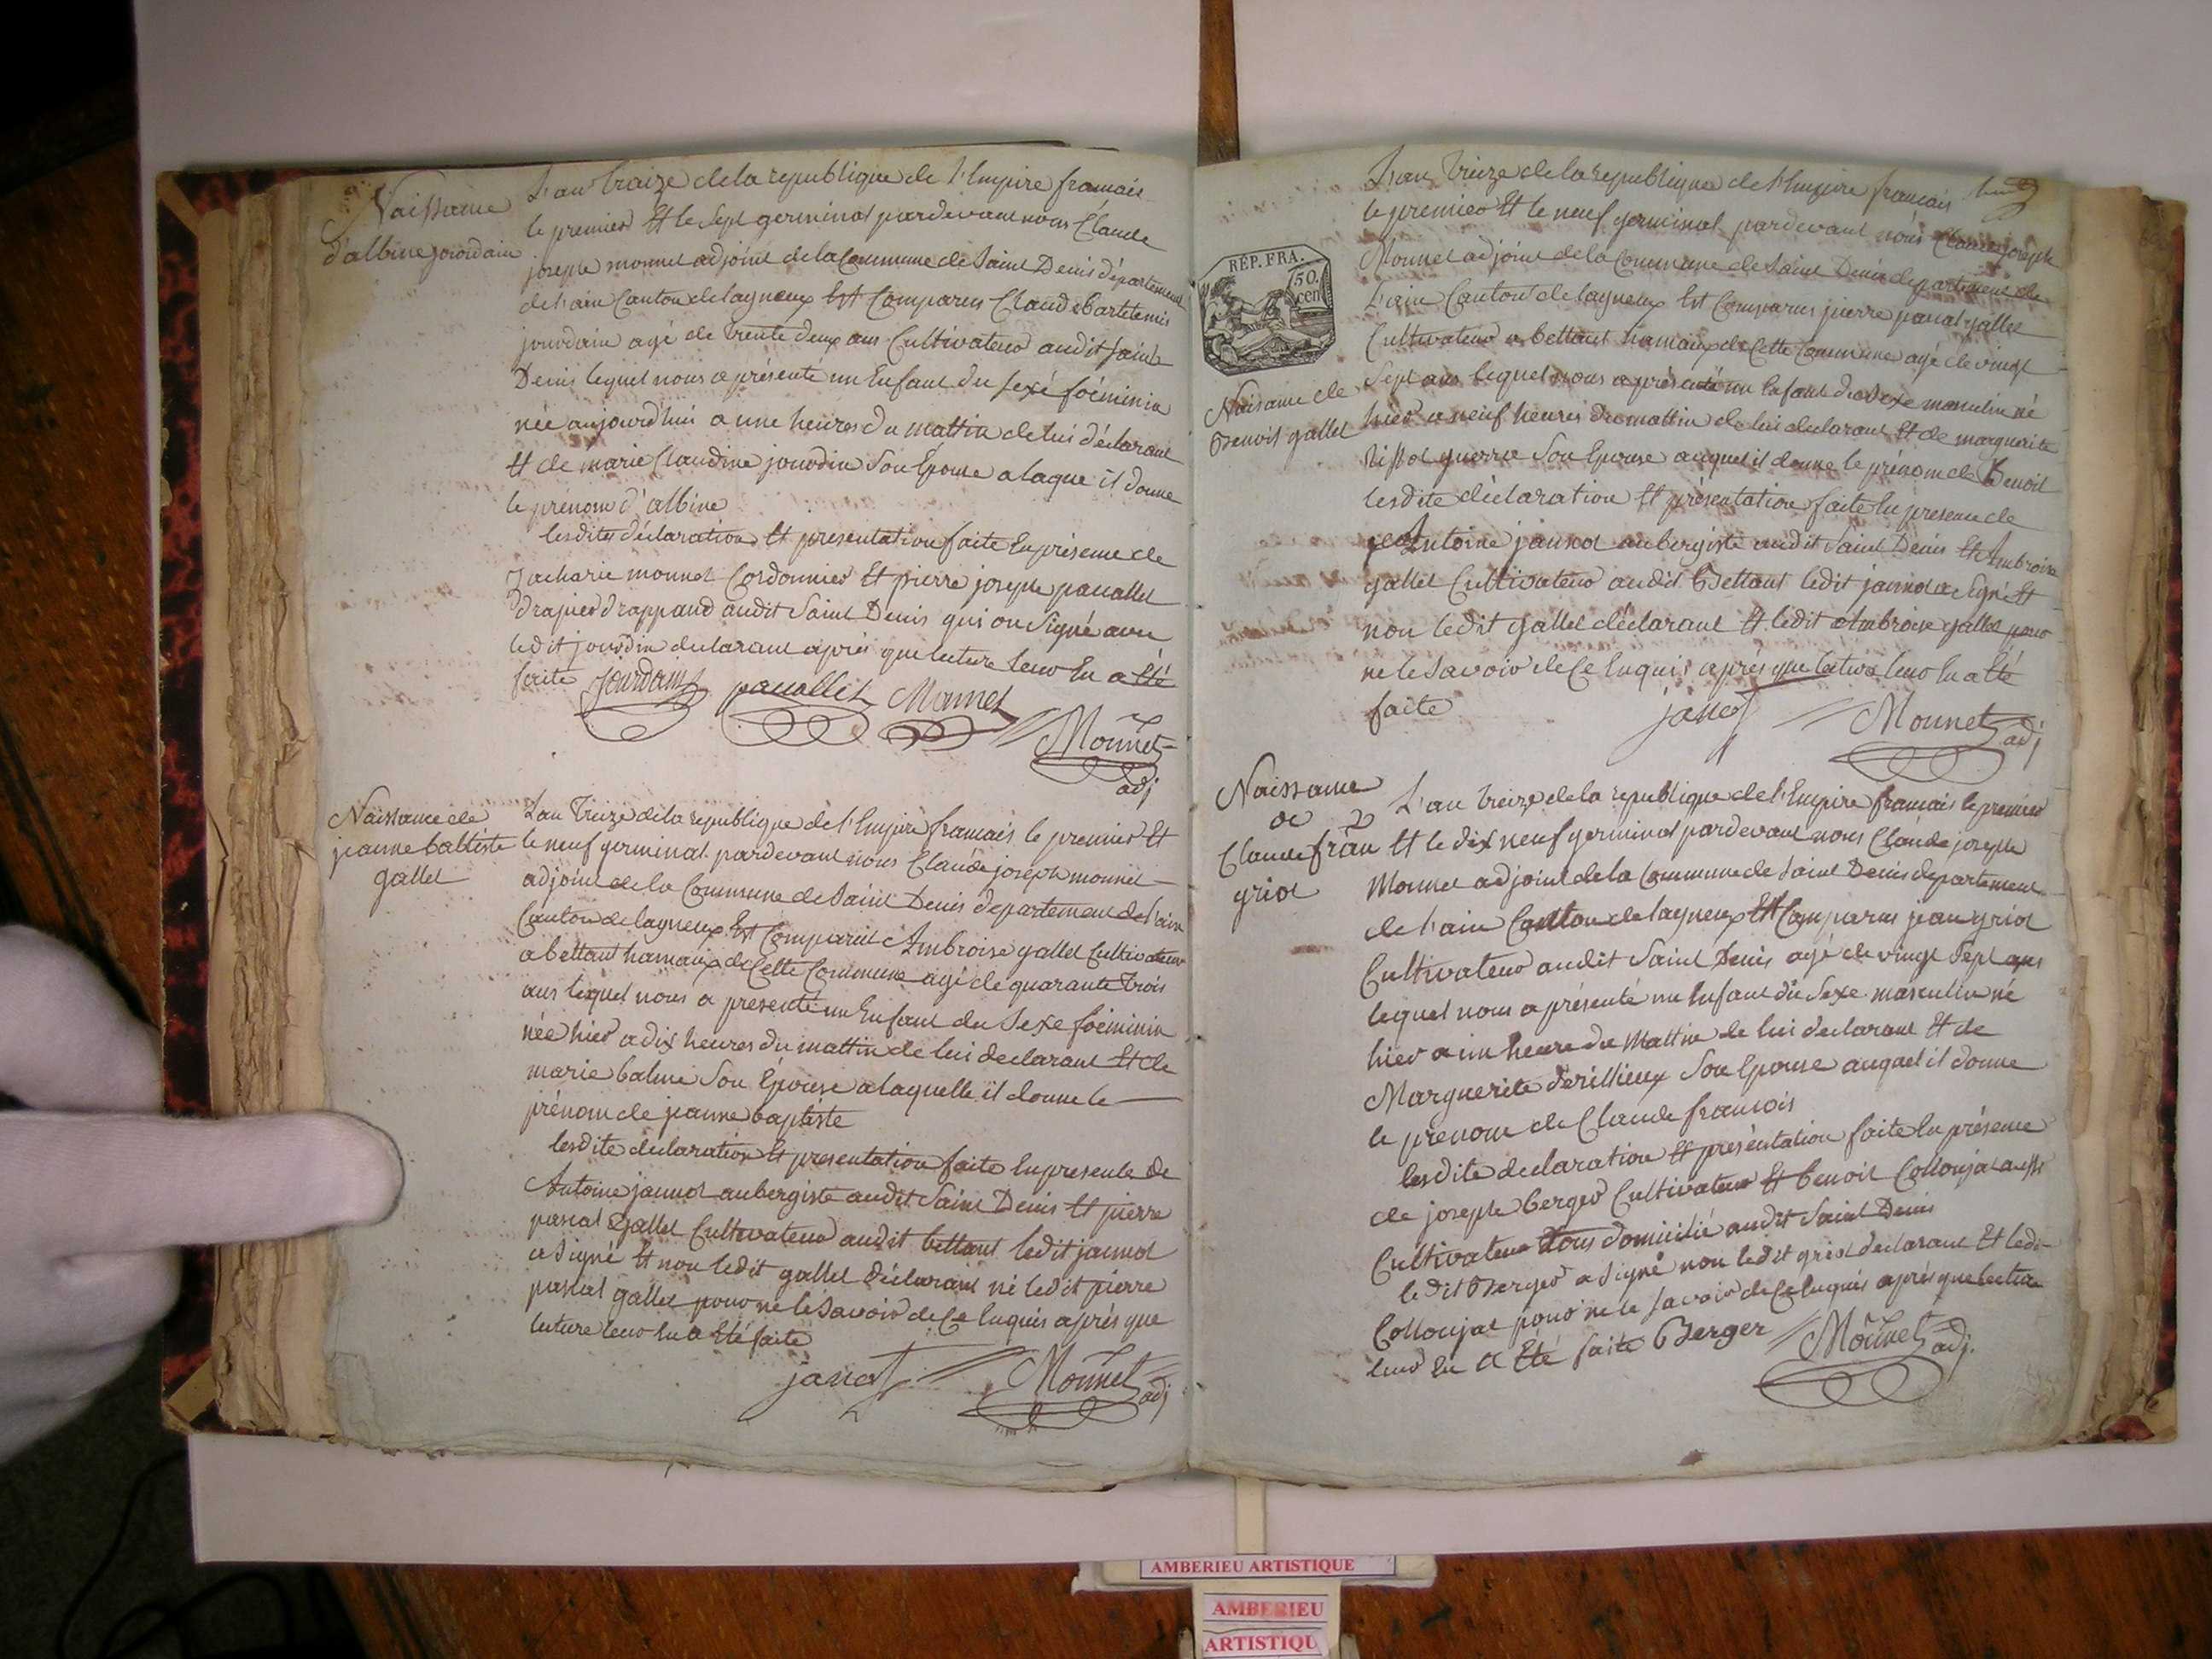 Naissance
d'albine jourdain
L'an traize de la republique de l'Empire francais
le premier Et le sept germinal pardevant nous Claude
joseph monnet adjoint de la Commune de Saint Denis département
de l'ain Canton de lagneux Est Comparus Claude Bartelemis
jourdain agé de trente deux ans Cultivateur audit saint
Denis lequel nous a présenté un Enfant du sexé foéminin
née aujourd'hui a une heures du mattin de lui déclarant
Et de marie Claudine jourdin son Epouse a laque il donne
le prénom d'albine
lesdites déclaration Et presentation faite En présence de
Zacharie monnet Cordonnier Et pierre joseph pacallet
drapier drappand audit Saint Denis qui on signé avec
ledit jourdin declarant après que lecture leur En a Eté
faite Jourdain pacallet Monnet
Monnet
adj
Naissance de
jeanne battiste
gallet
L'an treize de la republique de l'Empire francais le premier Et
le neuf germinal pardevant nous Claude joseph monnet
adjoint de la Commune de Saint Denis departement de l'ain
Canton de lagneux Est Comparut Ambroise gallet Cultivateur
a bettant hamaux de Cette Commune agé de quarante trois
ans lequel nous a presenté un Enfant du sexe foéminin
née hier a dix heures du mattin de lui declarant Et de
marie balme son Epouse a laquelle il donne le
prénom de jeanne baptiste
lesdite declaration Et presentation faite En presente de
Antoine jannot aubergiste audit Saint Denis Et pierre
pascal gallet Cultivateur audit bettant ledit jannot
a signé Et non ledit gallet déclarant né ledit pierre
pascal gallet pour ne le savoir de Ce Enquis après que
lecture leur En a Eté faite
janot Monnet
adj
REP. FRA.
50.
cen
L'an treize de la republique de l'Empire francais
le premier Et le neuf germinal pardevant nous Claude joseph
Monnet adjoint de la Commune de Saint Denis departement de
L'ain Canton de lagneux Est Comparus pierre pascal gallet
Cultivateur a bettant hamaux de Cette Commune agé de vingt
Naisance de
Benoit gallet
Sept ans lequel nous a présenté un Enfant du sexe masculin né
hier a neuf heures du mattin de lui declarant Et de marguerite
guerre son Epouse auquel il donne le prénom de Benoit
lesdite déclaration Et présentation faite En presence de
Antoine jannot aubergiste audit Saint Denis Et Ambroise
gallet Cultivateur audit Bettant ledit jannot a signé Et
non ledit gallet déclarant Et ledit Ambroise gallet pour
ne le savoir de Ce Enquis après que lecture leur En a Eté
faite
janot Monnet
adj
Naissance
de
Claude fran
griot
L'an treize de la republique de l'Empire francais le premier
Et le dix neuf germinal pardevant nous Claude joseph
Monnet adjoint de la Commune de Saint Denis departement
de l'ain Canton de lagneux Est Comparus jean griot
Cultivateur audit Saint Denis agé de vingt Sept ans
lequel nous a présenté un Enfant du Sexe masculin né
hier a un heure du mattin de lui declarant Et de
Marguerite derillieux Son Epouse auquel il donne
le prenom de Claude francois
lesdite declaration Et présentation faite En présence
de joseph berger Cultivateur Et benoit Collonjat aussi
Cultivateur tous domicilié audit Saint Denis
ledit Berger a signé non ledit griot declarant Et ledi
Collonjat pour ne le savoir de Ce Enquis après que lecture
leur En a Eté faite Berger Monnet adj.
AMBERIEU ARTISTIQUE
AMBERIEU
ARTISTIQU